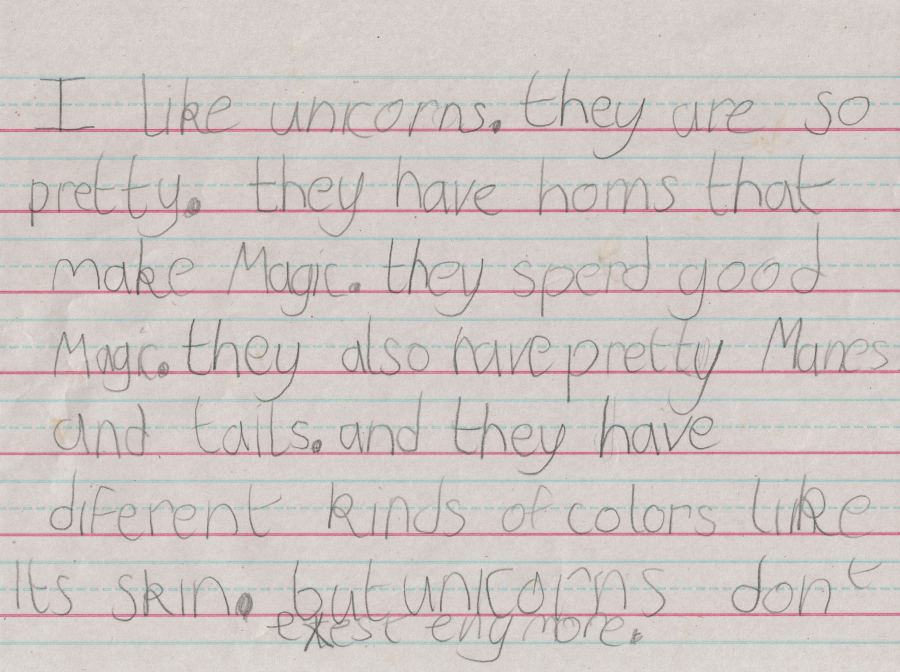 I like unicorns. they are so
pretty. they have horns that
make Magic. they spend good
Magic. they also have pretty Manes
and tails. and they have
diferent kinds of colors like
Its skin. but unicorns dont
exest engmore.